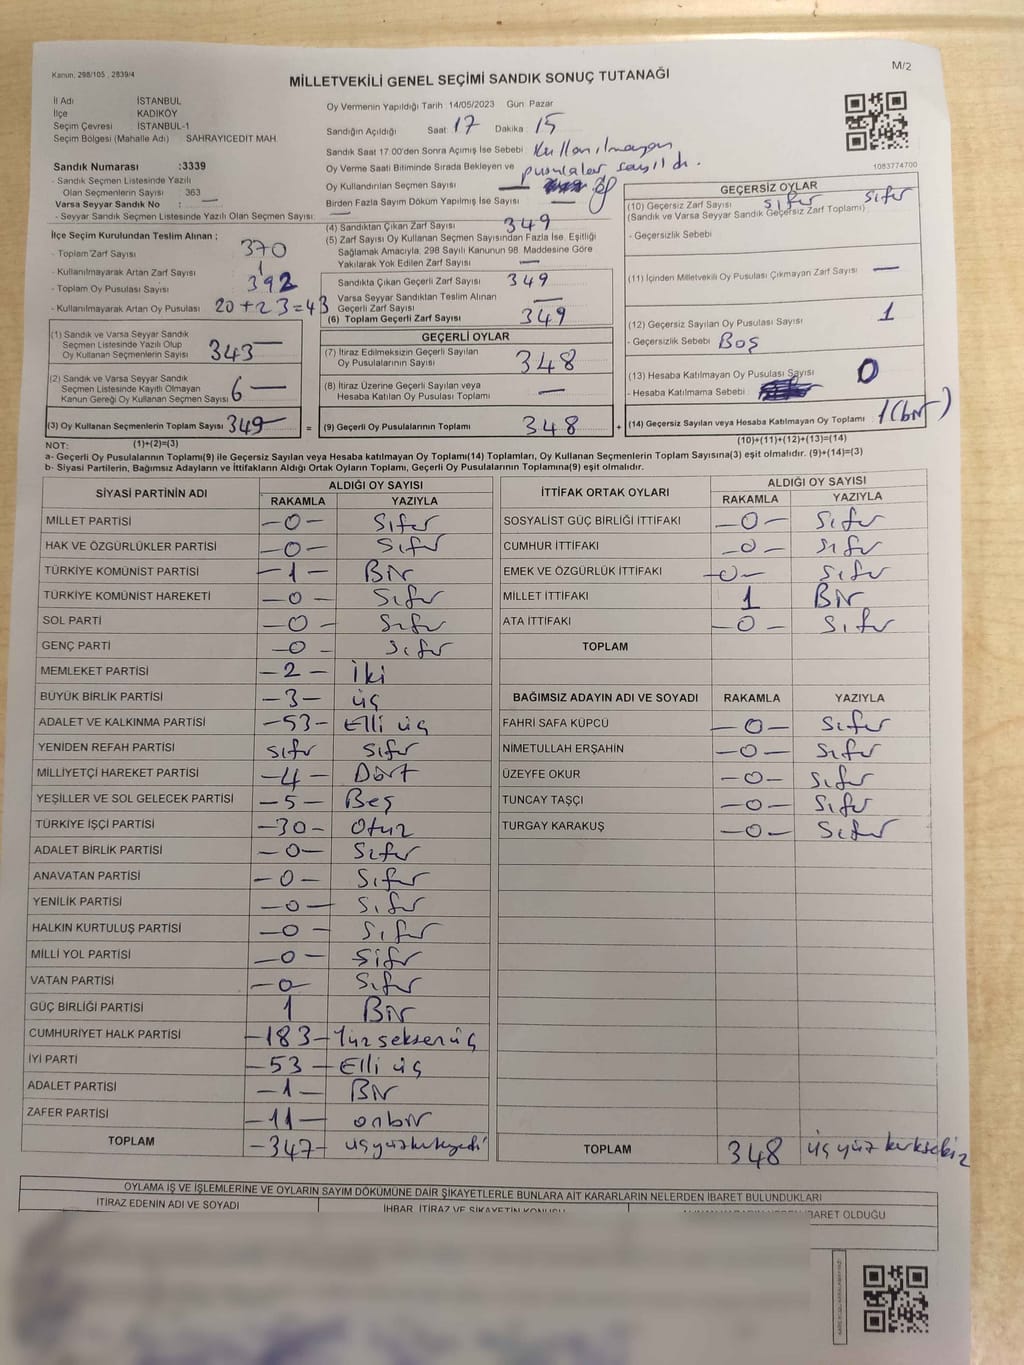 Kanun, 298/105 , 2839/4
M/2
MİLLETVEKİLİ GENEL SEÇİMİ SANDIK SONUÇ TUTANAĞI
İl Adı İSTANBUL
İlçe KADIKÖY
Seçim Çevresi İSTANBUL-1
Seçim Bölgesi (Mahalle Adı) SAHRAYICEDIT MAH.
Sandık Numarası :3339
- Sandık Seçmen Listesinde Yazılı
Olan Seçmenlerin Sayısı 363
Varsa Seyyar Sandık No : —
- Seyyar Sandık Seçmen Listesinde Yazılı Olan Seçmen Sayısı: —
Oy Vermenin Yapıldığı Tarih 14/05/2023 Gün Pazar
Sandığın Açıldığı Saat 17 Dakika 15
Sandık Saat 17.00'den Sonra Açımış İse Sebebi Kullanılmayan
Oy Verme Saati Bitiminde Sırada Bekleyen ve pusulalar sayıldı.
Oy Kullandırılan Seçmen Sayısı —
Birden Fazla Sayım Döküm Yapılmış İse Sayısı —
1083774700
İlçe Seçim Kurulundan Teslim Alınan ;
- Toplam Zarf Sayısı 370
- Kullanılmayarak Artan Zarf Sayısı
- Toplam Oy Pusulası Sayısı 392
- Kullanılmayarak Artan Oy Pusulası 20+23=43
(1) Sandık ve Varsa Seyyar Sandık
Seçmen Listesinde Yazılı Olup
Oy Kullanan Seçmenlerin Sayısı 343—
(2) Sandık ve Varsa Seyyar Sandık
Seçmen Listesinde Kayıtlı Olmayan
Kanun Gereği Oy Kullanan Seçmen Sayısı 6—
(3) Oy Kullanan Seçmenlerin Toplam Sayısı 349—
(4) Sandıktan Çıkan Zarf Sayısı 349
(5) Zarf Sayısı Oy Kullanan Seçmen Sayısından Fazla İse, Eşitliği
Sağlamak Amacıyla, 298 Sayılı Kanunun 98. Maddesine Göre
Yakılarak Yok Edilen Zarf Sayısı —
Sandıkta Çıkan Geçerli Zarf Sayısı 349
Varsa Seyyar Sandıktan Teslim Alınan
Geçerli Zarf Sayısı —
(6) Toplam Geçerli Zarf Sayısı 349
GEÇERLİ OYLAR
(7) İtiraz Edilmeksizin Geçerli Sayılan
Oy Pusulalarının Sayısı 348
(8) İtiraz Üzerine Geçerli Sayılan veya
Hesaba Katılan Oy Pusulası Toplamı —
= (9) Geçerli Oy Pusulalarının Toplamı 348
GEÇERSİZ OYLAR
(10) Geçersiz Zarf Sayısı sıfır sıfır
(Sandık ve Varsa Seyyar Sandık Geçersiz Zarf Toplamı)
- Geçersizlik Sebebi
(11) İçinden Milletvekili Oy Pusulası Çıkmayan Zarf Sayısı —
(12) Geçersiz Sayılan Oy Pusulası Sayısı 1
- Geçersizlik Sebebi Boş
(13) Hesaba Katılmayan Oy Pusulası Sayısı 0
- Hesaba Katılmama Sebebi
+ (14) Geçersiz Sayılan veya Hesaba Katılmayan Oy Toplamı 1(bir)
NOT: (1)+(2)=(3) (10)+(11)+(12)+(13)=(14)
a- Geçerli Oy Pusulalarının Toplamı(9) ile Geçersiz Sayılan veya Hesaba katılmayan Oy Toplamı(14) Toplamları, Oy Kullanan Seçmenlerin Toplam Sayısına(3) eşit olmalıdır. (9)+(14)=(3)
b- Siyasi Partilerin, Bağımsız Adayların ve İttifakların Aldığı Ortak Oyların Toplamı, Geçerli Oy Pusulalarının Toplamına(9) eşit olmalıdır.
SİYASİ PARTİNİN ADI ALDIĞI OY SAYISI
RAKAMLA YAZIYLA
MİLLET PARTİSİ —0— Sıfır
HAK VE ÖZGÜRLÜKLER PARTİSİ —0— Sıfır
TÜRKİYE KOMÜNİST PARTİSİ —1— Bir
TÜRKİYE KOMÜNİST HAREKETİ —0— Sıfır
SOL PARTİ —0— Sıfır
GENÇ PARTİ —0— Sıfır
MEMLEKET PARTİSİ —2— İki
BÜYÜK BİRLİK PARTİSİ —3— üç
ADALET VE KALKINMA PARTİSİ —53— Elli üç
YENİDEN REFAH PARTİSİ sıfır sıfır
MİLLİYETÇİ HAREKET PARTİSİ —4— Dört
YEŞİLLER VE SOL GELECEK PARTİSİ —5— Beş
TÜRKİYE İŞÇİ PARTİSİ —30— Otuz
ADALET BİRLİK PARTİSİ —0— Sıfır
ANAVATAN PARTİSİ —0— Sıfır
YENİLİK PARTİSİ —0— Sıfır
HALKIN KURTULUŞ PARTİSİ —0— Sıfır
MİLLİ YOL PARTİSİ —0— Sıfır
VATAN PARTİSİ —0— Sıfır
GÜÇ BİRLİĞİ PARTİSİ 1 Bir
CUMHURİYET HALK PARTİSİ —183— Yüz seksen üç
İYİ PARTİ —53— Elli üç
ADALET PARTİSİ —1— Bir
ZAFER PARTİSİ —11— onbir
TOPLAM —347— üçyüzkırkyedi
İTTİFAK ORTAK OYLARI ALDIĞI OY SAYISI
RAKAMLA YAZIYLA
SOSYALİST GÜÇ BİRLİĞİ İTTİFAKI —0— Sıfır
CUMHUR İTTİFAKI —0— sıfır
EMEK VE ÖZGÜRLÜK İTTİFAKI —0— Sıfır
MİLLET İTTİFAKI 1 Bir
ATA İTTİFAKI —0— Sıfır
TOPLAM
BAĞIMSIZ ADAYIN ADI VE SOYADI RAKAMLA YAZIYLA
FAHRİ SAFA KÜPCÜ —0— Sıfır
NİMETULLAH ERŞAHİN —0— Sıfır
ÜZEYFE OKUR —0— Sıfır
TUNCAY TAŞÇI —0— Sıfır
TURGAY KARAKUŞ —0— Sıfır
TOPLAM 348 üçyüz kırksekiz
OYLAMA İŞ VE İŞLEMLERİNE VE OYLARIN SAYIM DÖKÜMÜNE DAİR ŞİKAYETLERLE BUNLARA AİT KARARLARIN NELERDEN İBARET BULUNDUKLARI
İTİRAZ EDENİN ADI VE SOYADI
İHBAR, İTİRAZ VE ŞİKAYETİN KONUSU
İBARET OLDUĞU